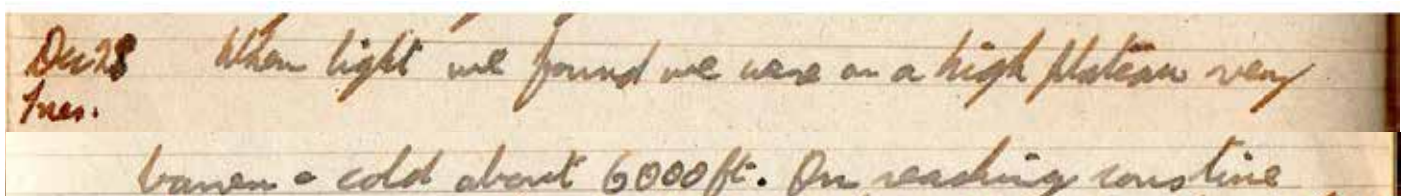 Dec 28 When light we found we were on a high plateau very
Tues.
barren & cold about 6000ft. On reaching